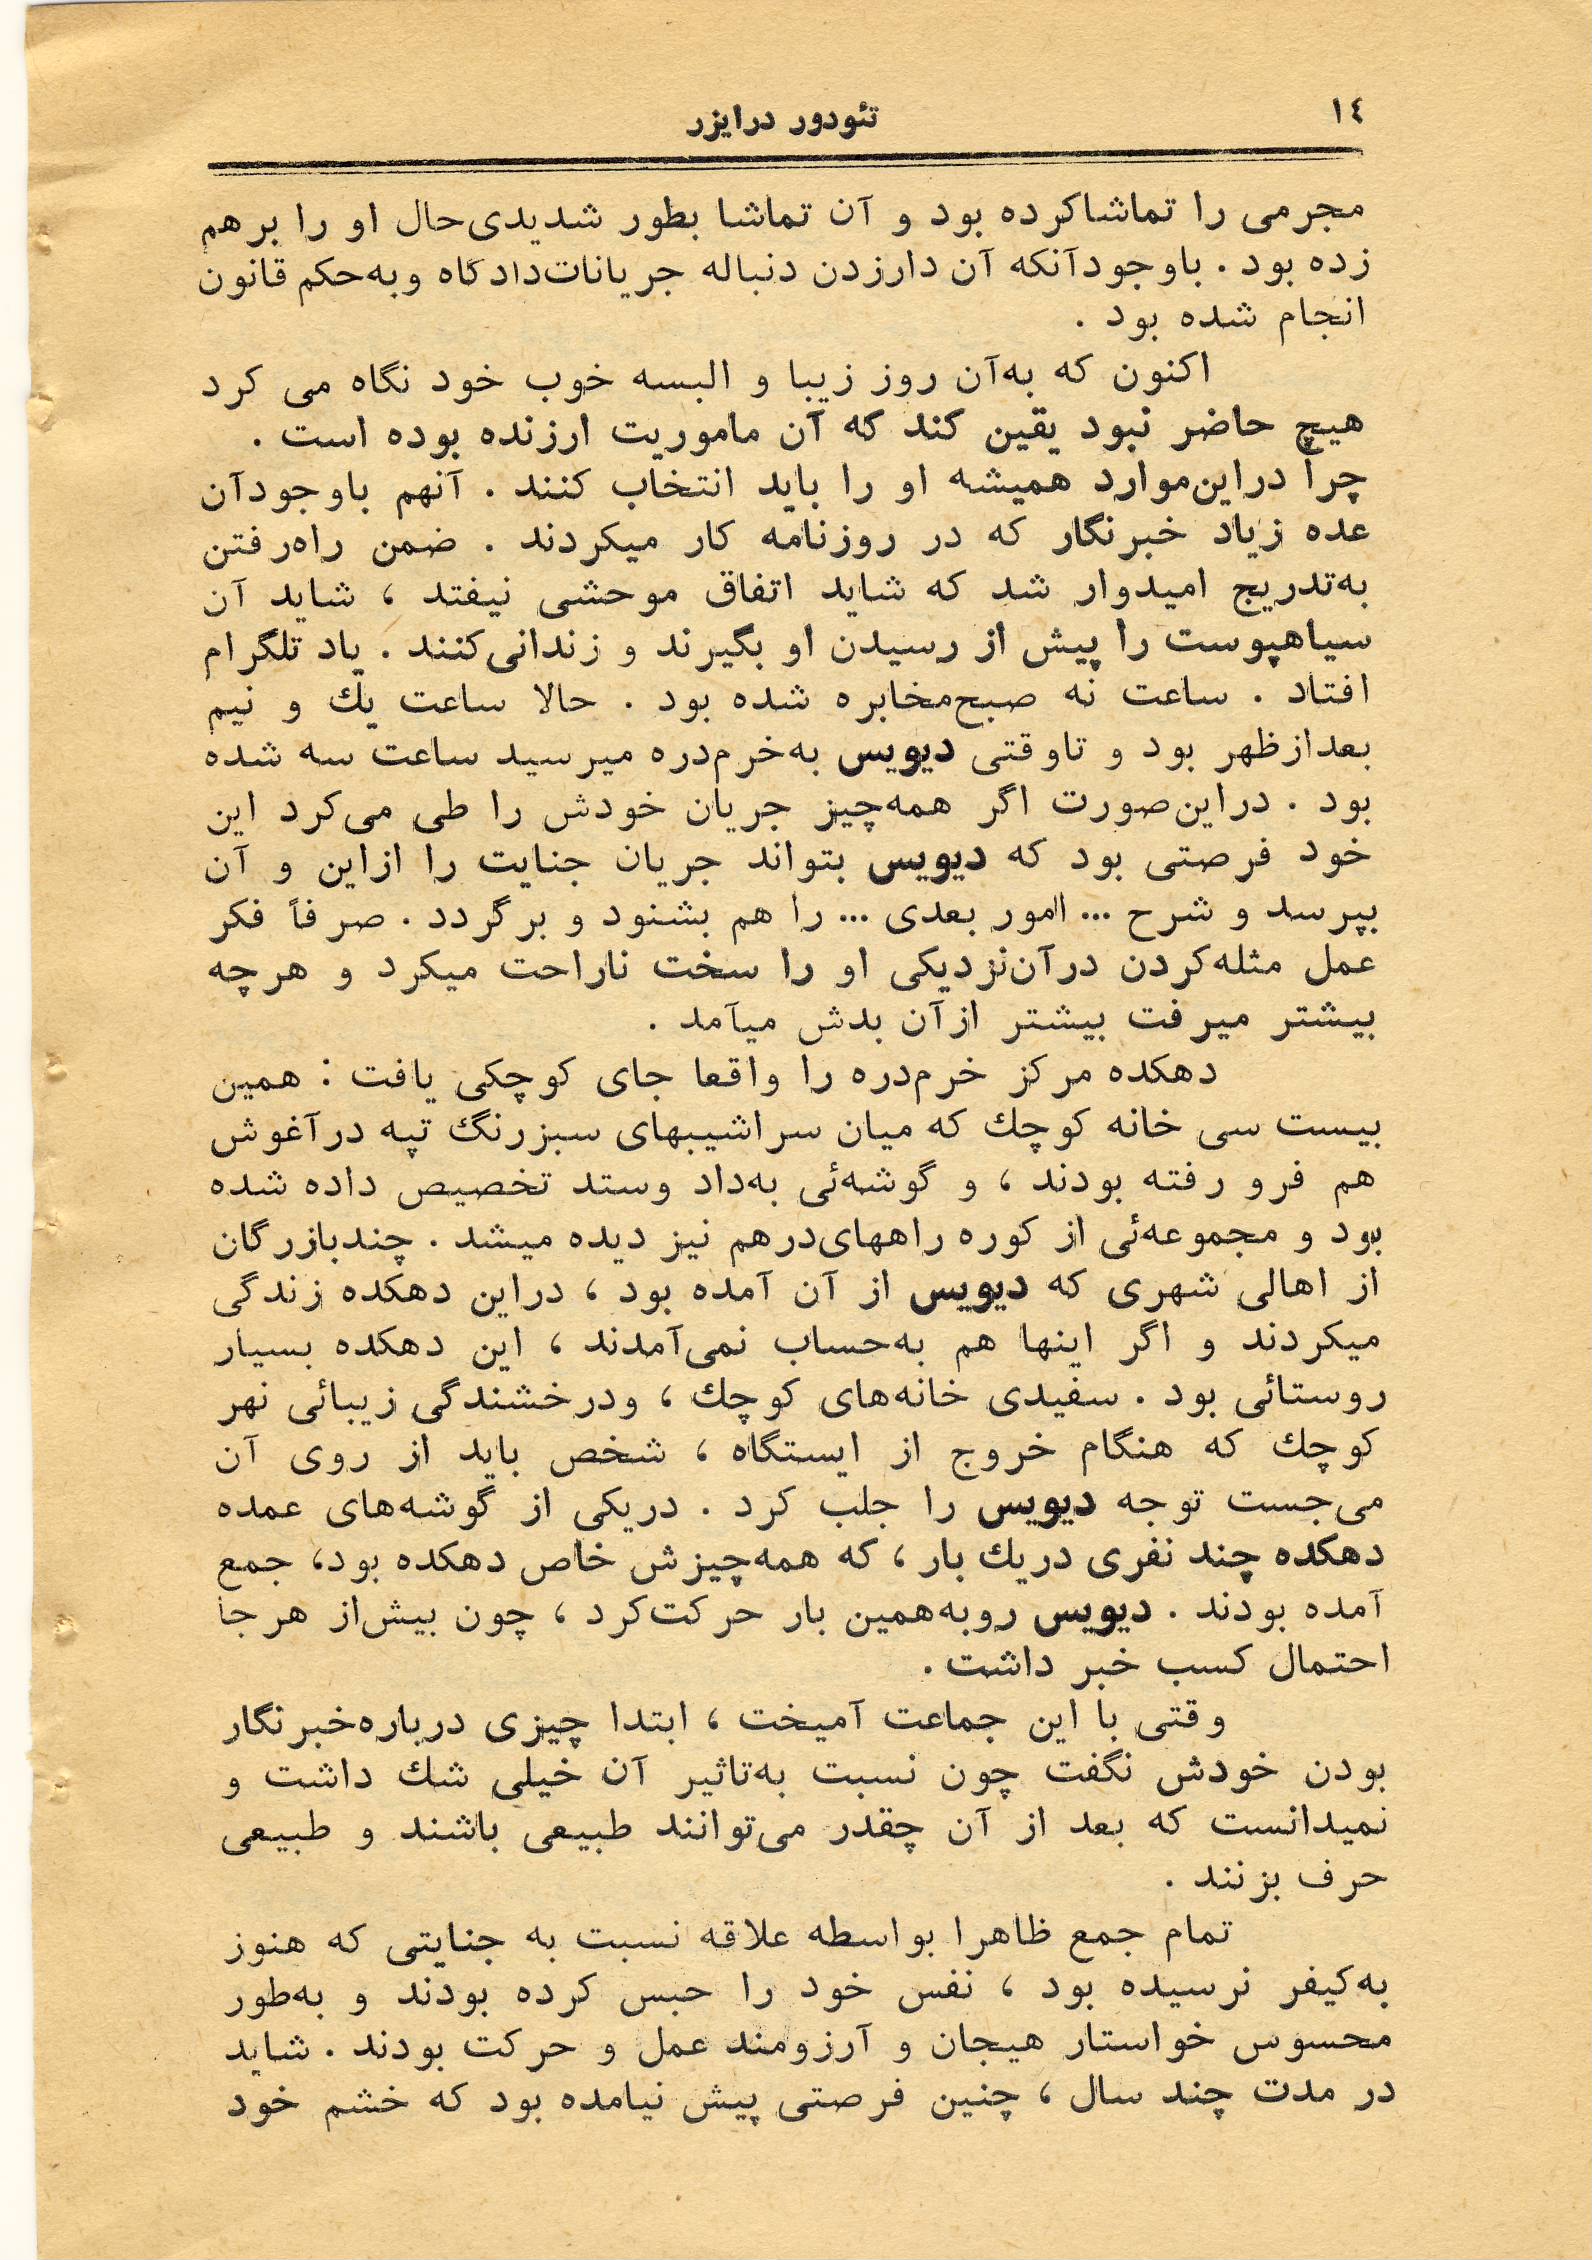 ١٤
تئودور درایزر
مجرمی را تماشاکرده بود و آن تماشا بطور شدیدی‌حال او را برهم
زده بود . باوجودآنکه آن دارزدن دنباله جریانات‌دادگاه وبه‌حکم قانون
انجام شده بود .
اکنون که به‌آن روز زیبا و البسه خوب خود نگاه می کرد
هیچ حاضر نبود یقین کند که آن ماموریت ارزنده بوده است .
چرا دراین‌موارد همیشه او را باید انتخاب کنند . آنهم باوجودآن
عده زیاد خبرنگار که در روزنامه کار میکردند . ضمن راه‌رفتن
به‌تدریج امیدوار شد که شاید اتفاق موحشی نیفتد ، شاید آن
سیاهپوست را پیش از رسیدن او بگیرند و زندانی‌کنند . یاد تلگرام
افتاد . ساعت نه صبح‌مخابره شده بود . حالا ساعت یك و نیم
بعدازظهر بود و تاوقتی دیویس به‌خرم‌دره میرسید ساعت سه شده
بود . دراین‌صورت اگر همه‌چیز جریان خودش را طی می‌کرد این
خود فرصتی بود که دیویس بتواند جریان جنایت را ازاین و آن
بپرسد و شرح ... امور بعدی ... را هم بشنود و برگردد . صرفاً فکر
عمل مثله‌کردن درآن‌نزدیکی او را سخت ناراحت میکرد و هرچه
بیشتر میرفت بیشتر ازآن بدش میآمد .
دهکده مرکز خرم‌دره را واقعا جای کوچکی یافت : همین
بیست سی خانه کوچك که میان سراشیبهای سبزرنگ تپه درآغوش
هم فرو رفته بودند ، و گوشه‌ئی به‌داد وستد تخصیص داده شده
بود و مجموعه‌ئی از کوره راههای‌درهم نیز دیده میشد . چندبازرگان
از اهالی شهری که دیویس از آن آمده بود ، دراین دهکده زندگی
میکردند و اگر اینها هم به‌حساب نمی‌آمدند ، این دهکده بسیار
روستائی بود . سفیدی خانه‌های کوچك ، ودرخشندگی زیبائی نهر
کوچك که هنگام خروج از ایستگاه ، شخص باید از روی آن
می‌جست توجه دیویس را جلب کرد . دریکی از گوشه‌های عمده
دهکده چند نفری دریك بار ، که همه‌چیزش خاص دهکده بود، جمع
آمده بودند . دیویس روبه‌همین بار حرکت‌کرد ، چون بیش‌از هرجا
احتمال کسب خبر داشت .
وقتی با این جماعت آمیخت ، ابتدا چیزی درباره‌خبرنگار
بودن خودش نگفت چون نسبت به‌تاثیر آن خیلی شك داشت و
نمیدانست که بعد از آن چقدر می‌توانند طبیعی باشند و طبیعی
حرف بزنند .
تمام جمع ظاهرا بواسطه علاقه نسبت به جنایتی که هنوز
به‌کیفر نرسیده بود ، نفس خود را حبس کرده بودند و به‌طور
محسوس خواستار هیجان و آرزومند عمل و حرکت بودند . شاید
در مدت چند سال ، چنین فرصتی پیش نیامده بود که خشم خود